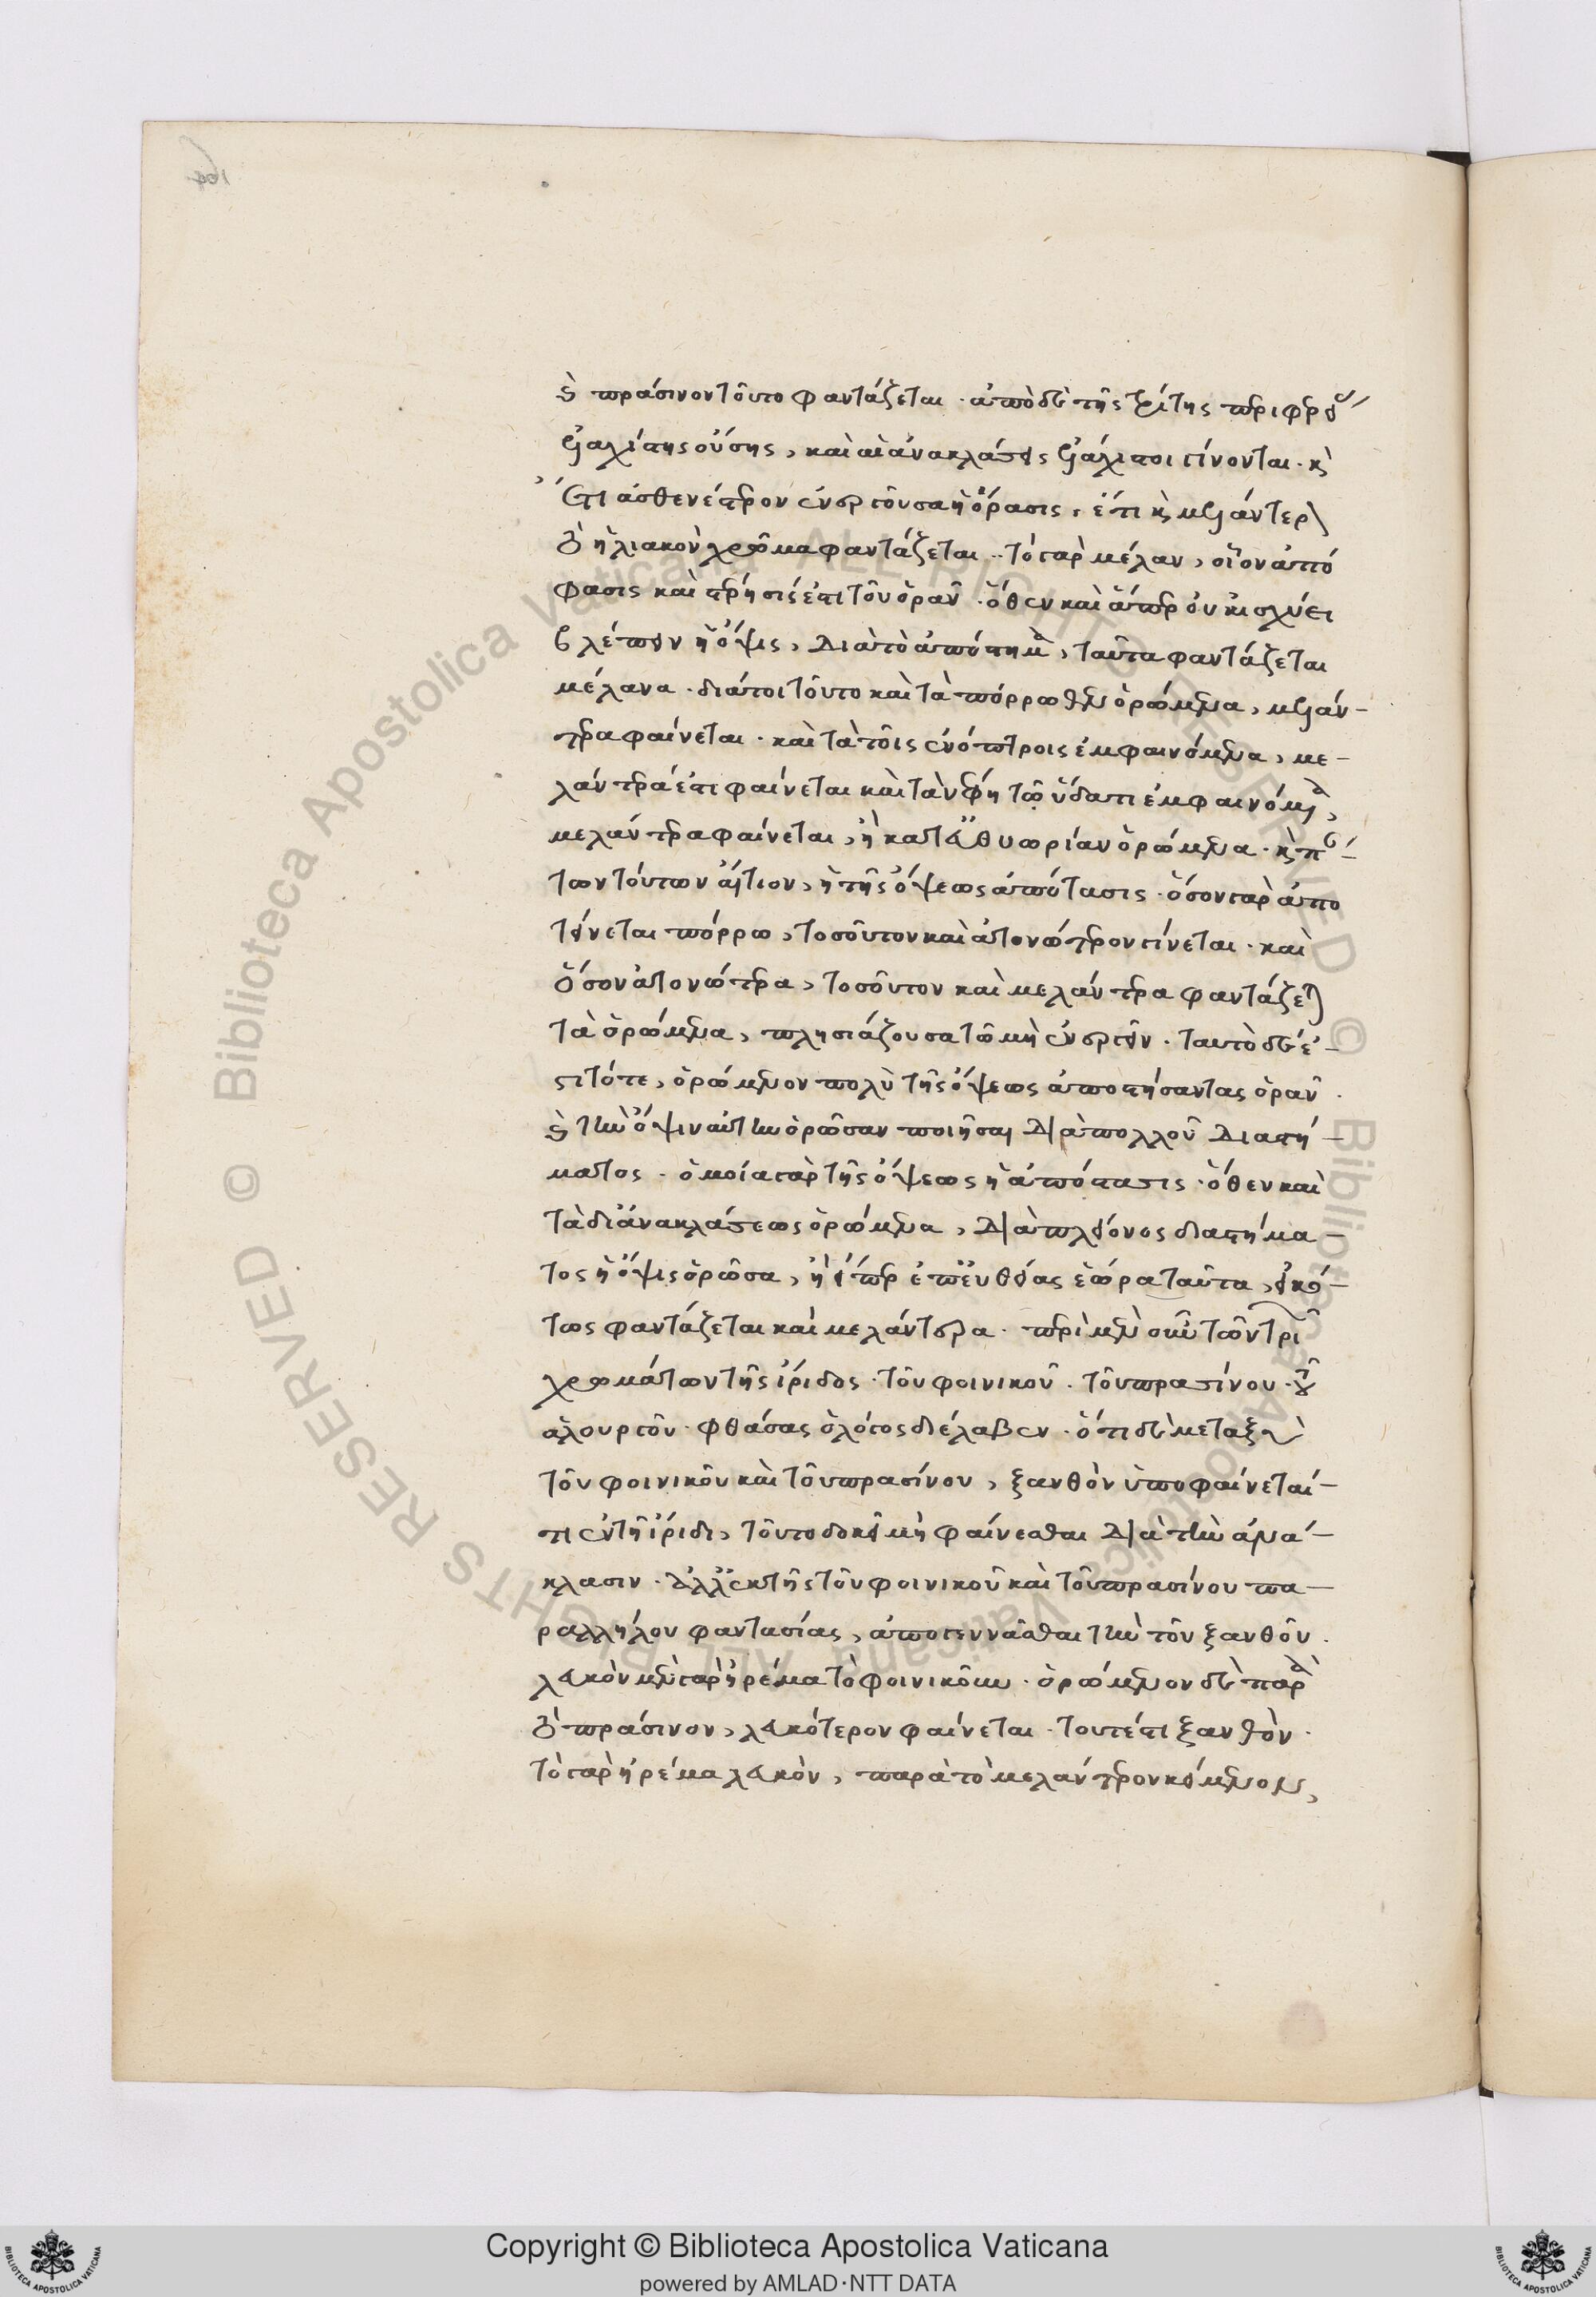 καὶ πράσινον τοῦτο φαντάζεται. ἀπὸ δὲ τῆς τρίτης περιφερείας
ἐλαχίστης οὔσης, καὶ αἱ ἀνακλάσεις ἐλάχισται γίνονται. καὶ
ἔτι ἀσθενέστερον ἐνεργοῦσα ἡ ὅρασις, ἔτι καὶ μελάντερον
τὸ ἡλιακὸν χρῶμα φαντάζεται. τὸ γὰρ μέλαν, οἷον ἀπό
φασις καὶ στέρησίς ἐστι τοῦ ὁρᾶν. ὅθεν καὶ ἅπερ οὐκ ἰσχύει
βλέπειν ἡ ὄψις, διὰ τὸ ἀπόστημα, ταῦτα φαντάζεται
μέλανα. διάτοι τοῦτο καὶ τὰ πόρρωθεν ὁρώμενα, μελάν-
τερα φαίνεται. καὶ τὰ τοῖς ἐνόπτροις ἐμφαινόμενα, με-
λάντερα ἔτι φαίνεται καὶ τὰ ἐν τῷ ὕδατι ἐμφαινόμενα,
μελάντερα φαίνεται, ἢ κατ' εὐθυωρίαν ὁρώμενα. καὶ
τῶν τούτων αἴτιον, ἡ τῆς ὄψεως ἀπότασις. ὅσον γὰρ ἀπο
τείνεται πόρρω, τοσοῦτον καὶ ἀτονώτερον γίνεται. καὶ
ὅσον ἀτονώτερα, τοσοῦτον καὶ μελάντερα φαντάζεται
τὰ ὁρώμενα, πλησιάζουσα τῷ μὴ ἐνεργεῖν. ταυτὸ δέ ἐ-
στι τό τε, ὁρώμενον πολὺ τῆς ὄψεως ἀποστήσαντας ὁρᾶν.
καὶ τὴν ὄψιν αὐτὴν ὁρῶσαν ποιῆσαι διὰ πολλοῦ διαστή-
ματος. ὁμοία γὰρ τῆς ὄψεως ἡ ἀπόστασις. ὅθεν καὶ
τὰ δι' ἀνακλάσεως ὁρώμενα, διὰ πλείονος διαστήμα-
τος ἡ ὄψις ὁρῶσα, ἢ εἴπερ ἐπ' εὐθείας ἑώρα ταῦτα, εἰκό-
τως φαντάζεται καὶ μελάντερα. περὶ μὲν οὖν τῶν τριῶν
χρωμάτων τῆς ἴριδος. τοῦ φοινικοῦ. τοῦ πρασίνου. τοῦ
ἁλουργοῦ. φθάσας ὁ λόγος διέλαβεν. ὅτι δὲ μεταξὺ
τοῦ φοινικοῦ καὶ τοῦ πρασίνου, ξανθὸν ὑποφαίνεταί-
τι ἐν τῇ ἴριδι, τοῦτο δοκεῖ μὴ φαίνεσθαι διὰ τὴν ἀνά-
κλασιν. ἀλλ' ἐκ τῆς τοῦ φοινικοῦ καὶ τοῦ πρασίνου πα-
ραλλήλου φαντασίας, ἀπογεννᾶσθαι τὴν τοῦ ξανθοῦ.
λευκὸν μὲν γὰρ ἠρέμα τὸ φοινικοῦν. ὁρώμενον δὲ παρὰ
τὸ πράσινον, λευκότερον φαίνεται. τουτέστι ξανθόν.
τὸ γὰρ ἠρέμα λευκὸν, παρὰ τὸ μελάντερον κείμενον,
Copyright © Biblioteca Apostolica Vaticana
powered by AMLAD·NTT DATA